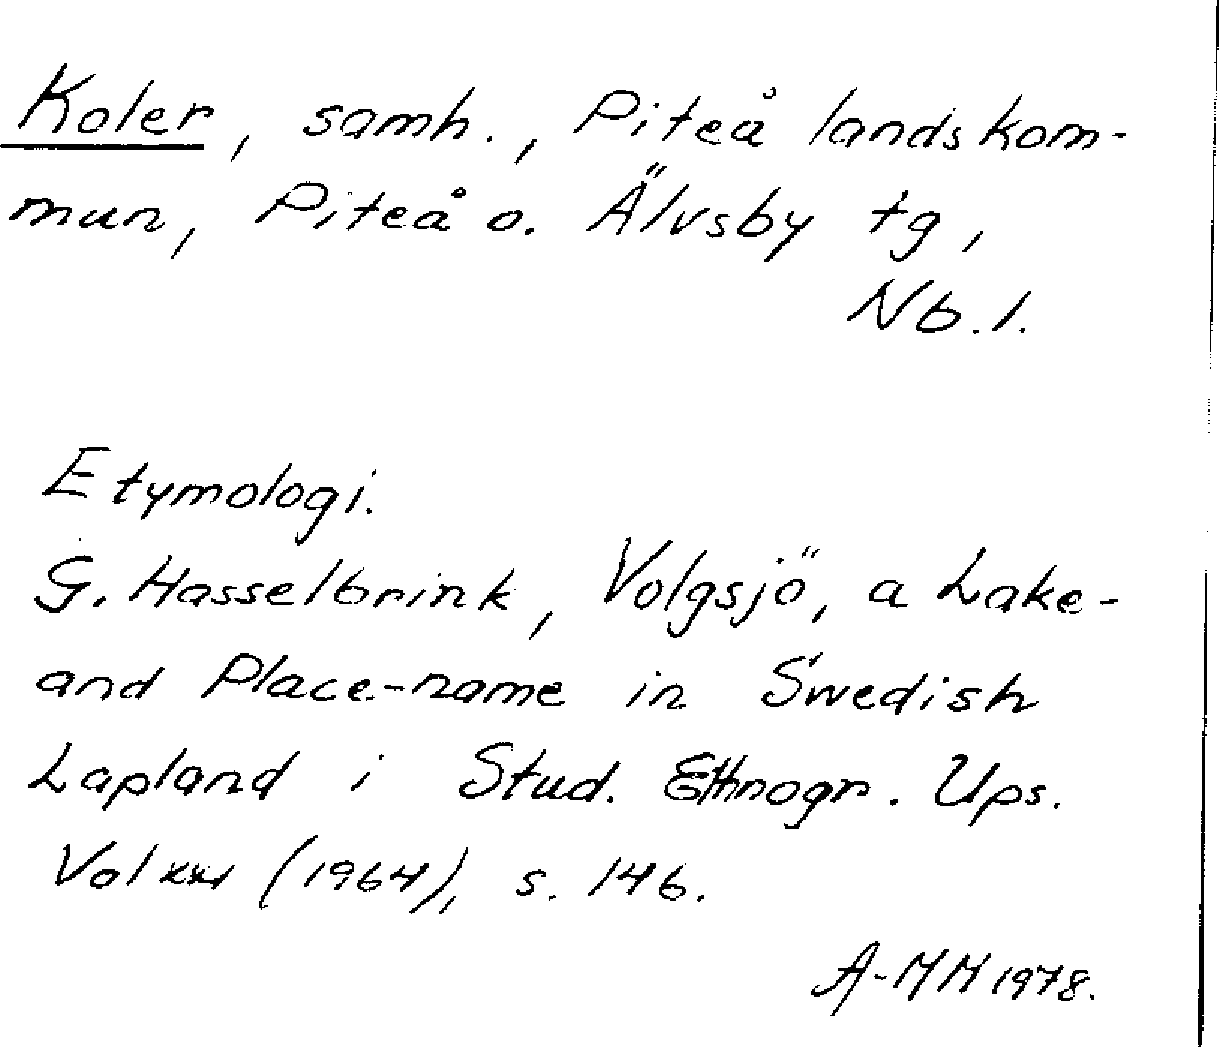 Koler, samh., Piteå landskom-
mun, Piteå o. Älvsby tg,
Nb. l.
Etymologi.
G. Hasselbrink, Volgsjö, a Lake-
and Place-name in Swedish
Lapland i Stud. Ethnogr. Ups.
Vol xxi (1964), s. 146.
A-MM 1978.